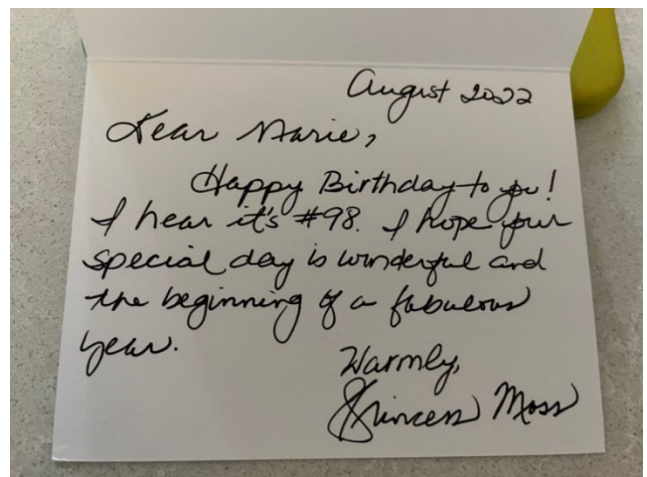 August 2022
Dear Marie,
Happy Birthday to you!
I hear it's #98. I hope your
special day is wonderful and
the beginning of a fabulous
year.
Warmly,
Princess Moss